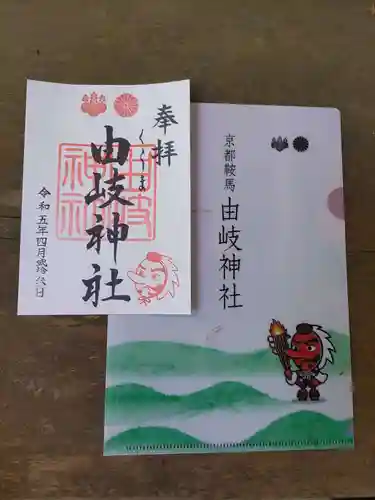 奉拝
くらま
由岐神社
由岐神社
令和五年四月弐拾
京都鞍馬
由岐神社